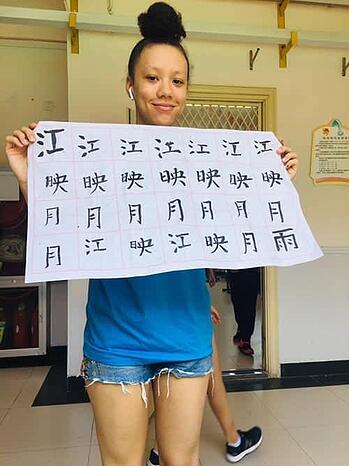 江江江江江江江
映映映映映映映
月月月月月月月
月江映江映月雨